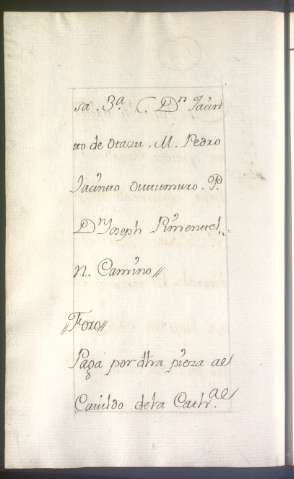 sa. 3ª C. Dⁿ Jacin
to de Otazu. M. Pedro
Jacinto P.
Dⁿ Joseph Pimentel.
N. Camino//
//Foro//
Paga por dha pieza al
Cavildo dela Cathᵃˡ